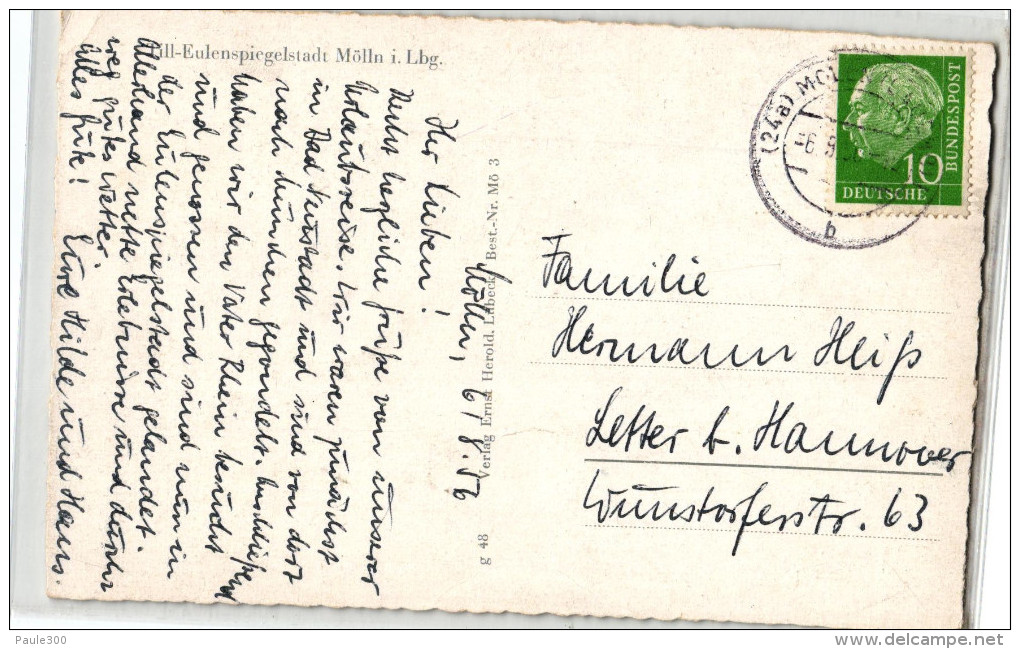 Till-Eulenspiegelstadt Mölln i. Lbg.
Mölln, 6/8.56
Ihr Lieben!
Recht herzliche Grüße von unserer
Urlaubsreise. Wir waren zunächst
in Bad Neustadt und sind von dort
nach München gegondelt. Anschließend
haben wir den Vater Rhein besucht
und genossen und sind nun in
der Eulenspiegelstadt gelandet.
Allerhand nette Erlebnisse und durch
weg gutes Wetter.
Alles Gute! Eure Hilde und Hans.
g 48 Verlag Ernst Herold, Lübeck Best.-Nr. Mö 3
(24a) MÖL
-6.8.5
b
10
DEUTSCHE
BUNDESPOST
Familie
Hermann Heiß
Letter b. Hannover
Wunstorferstr. 63
Paule300
www.delcampe.net